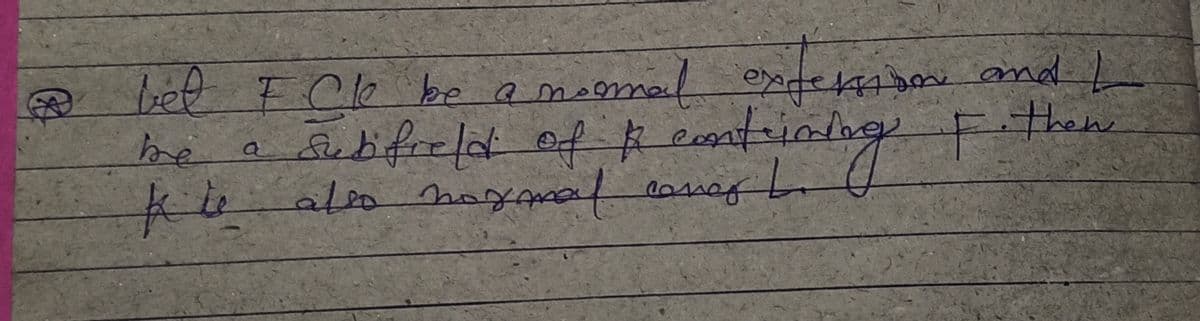 Let F ⊆ K be a normal extension and L
be a Subfield of K containing F. then
K is also normal over L.